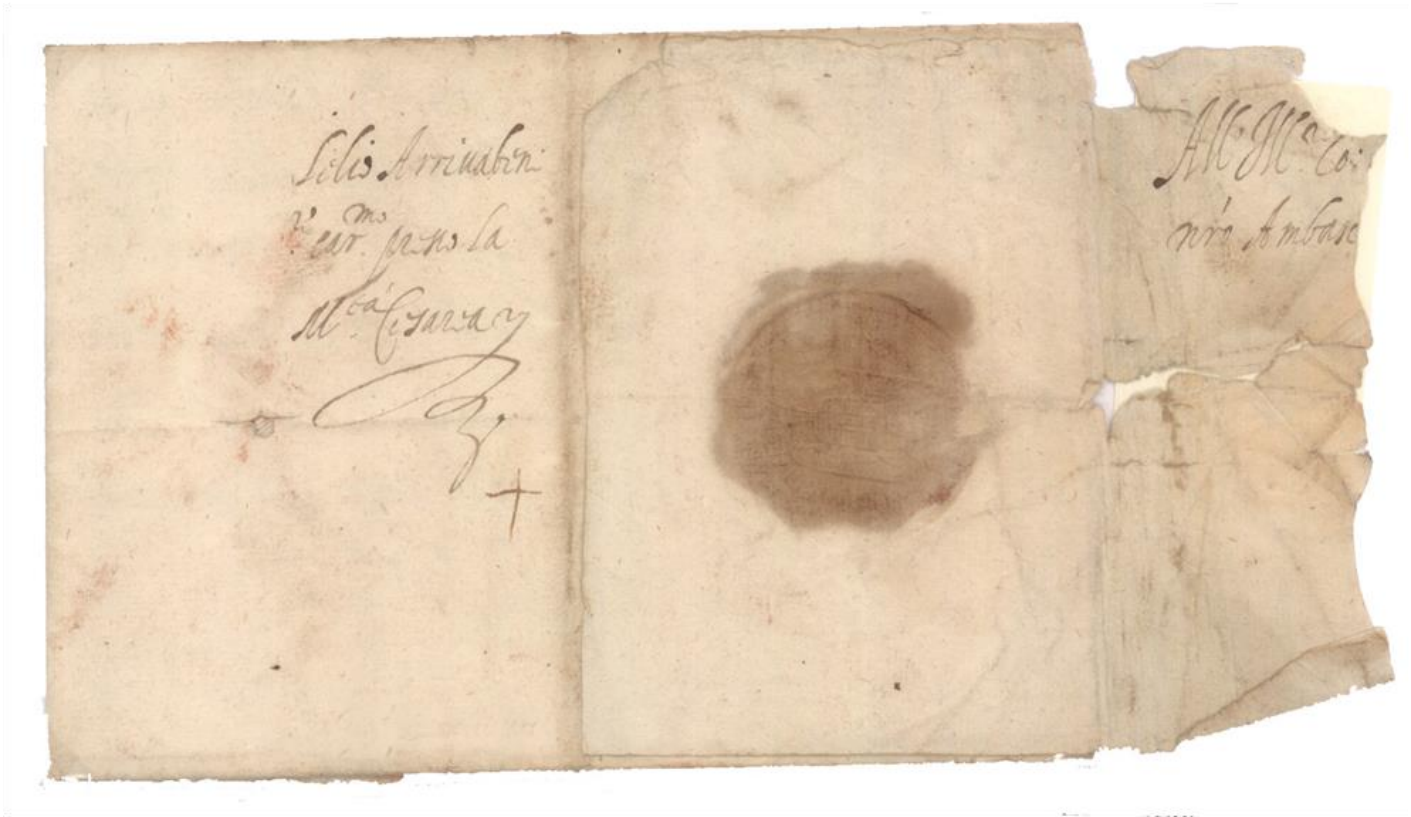 Lelio Arriuabeni
re car.mo presso la
M.tà Cesarea
Co:
nro Ambasc